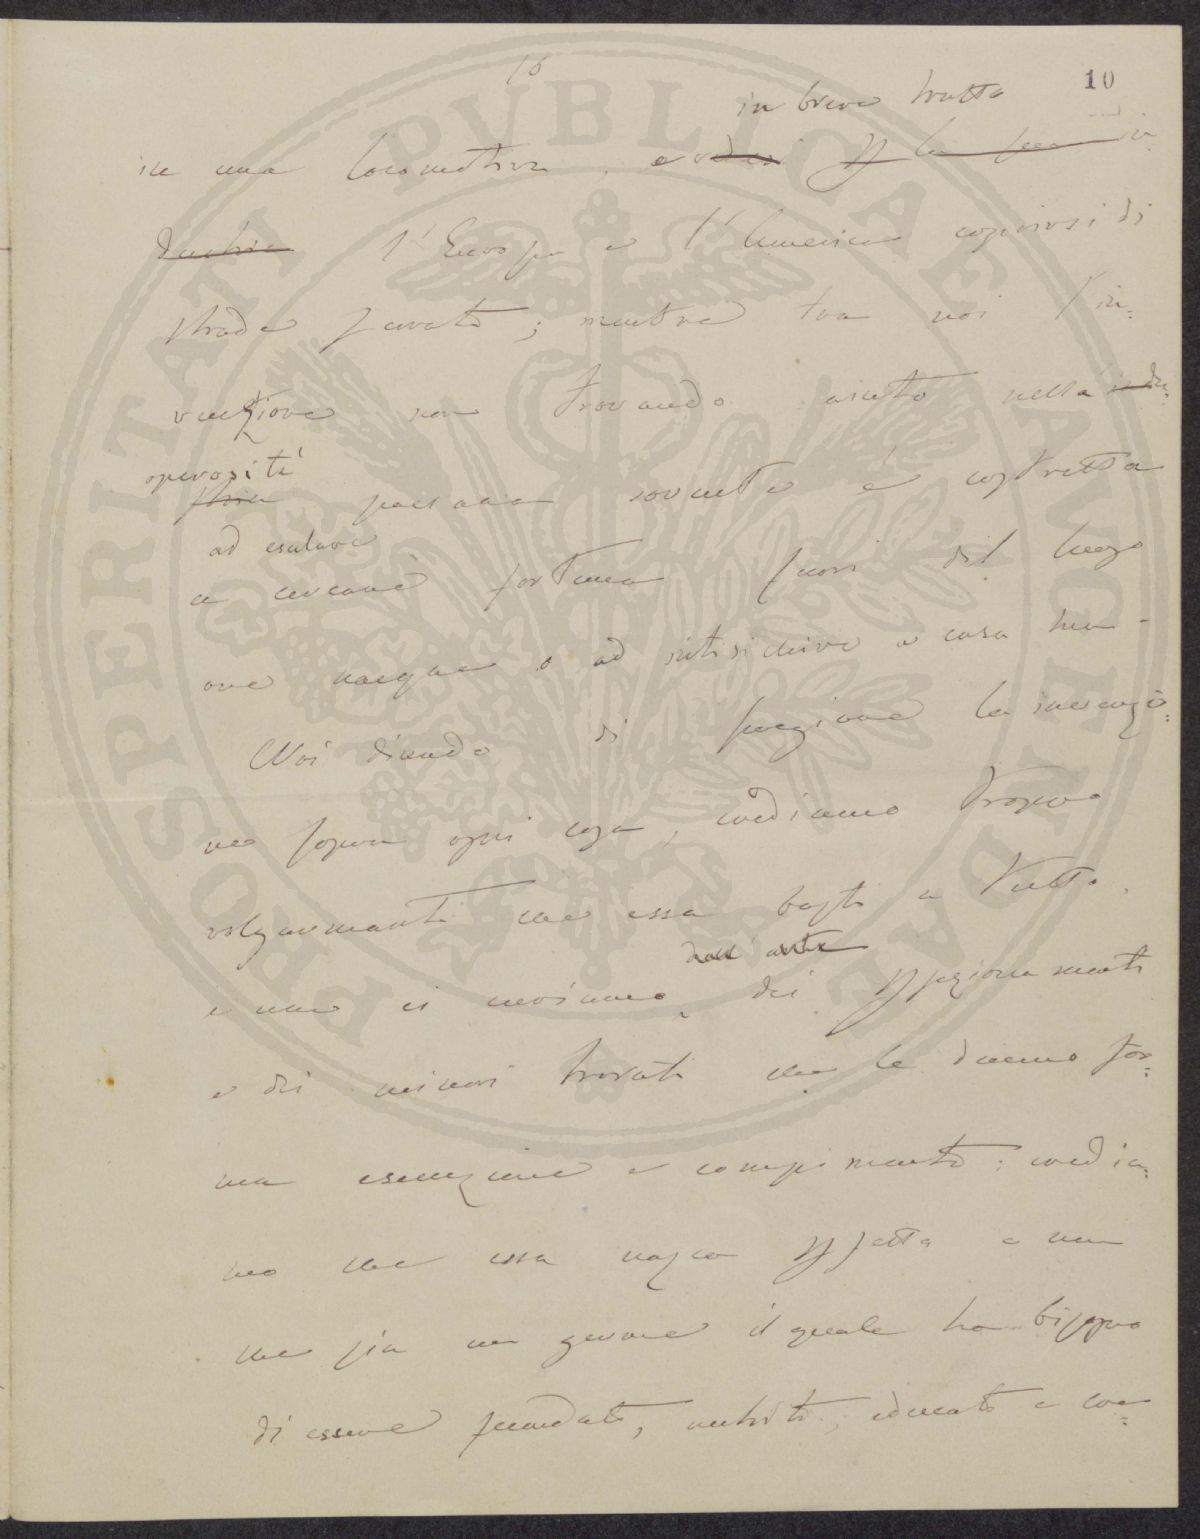 16
10
in breve tratto
in una locomotiva, e vedesi la sua in-
dustria l'Europa e l'America coprirsi di
strade ferrate; mentre tra noi l'in-
venzione non trovando aiuto nella indu-
operosità
stria paesana sovente è costretta
ad esulare
a cercare fortuna fuori del luogo
ove nacque o ad intisichire a casa sua -
Noi dicendo di pregiare la invenzio-
ne sopra ogni cosa, crediamo troppo
volgarmente che essa basti a tutto.
dall'arte
e non ci curiamo dei perfezionamenti
e dei minori trovati che le danno for-
ma esecuzione e compimento: credia-
mo che essa nasca perfetta e non
che sia un germe il quale ha bisogno
di essere fecondato, nutrito, educato e con-
PROSPERITATI PVBLICAE AVGENDAE